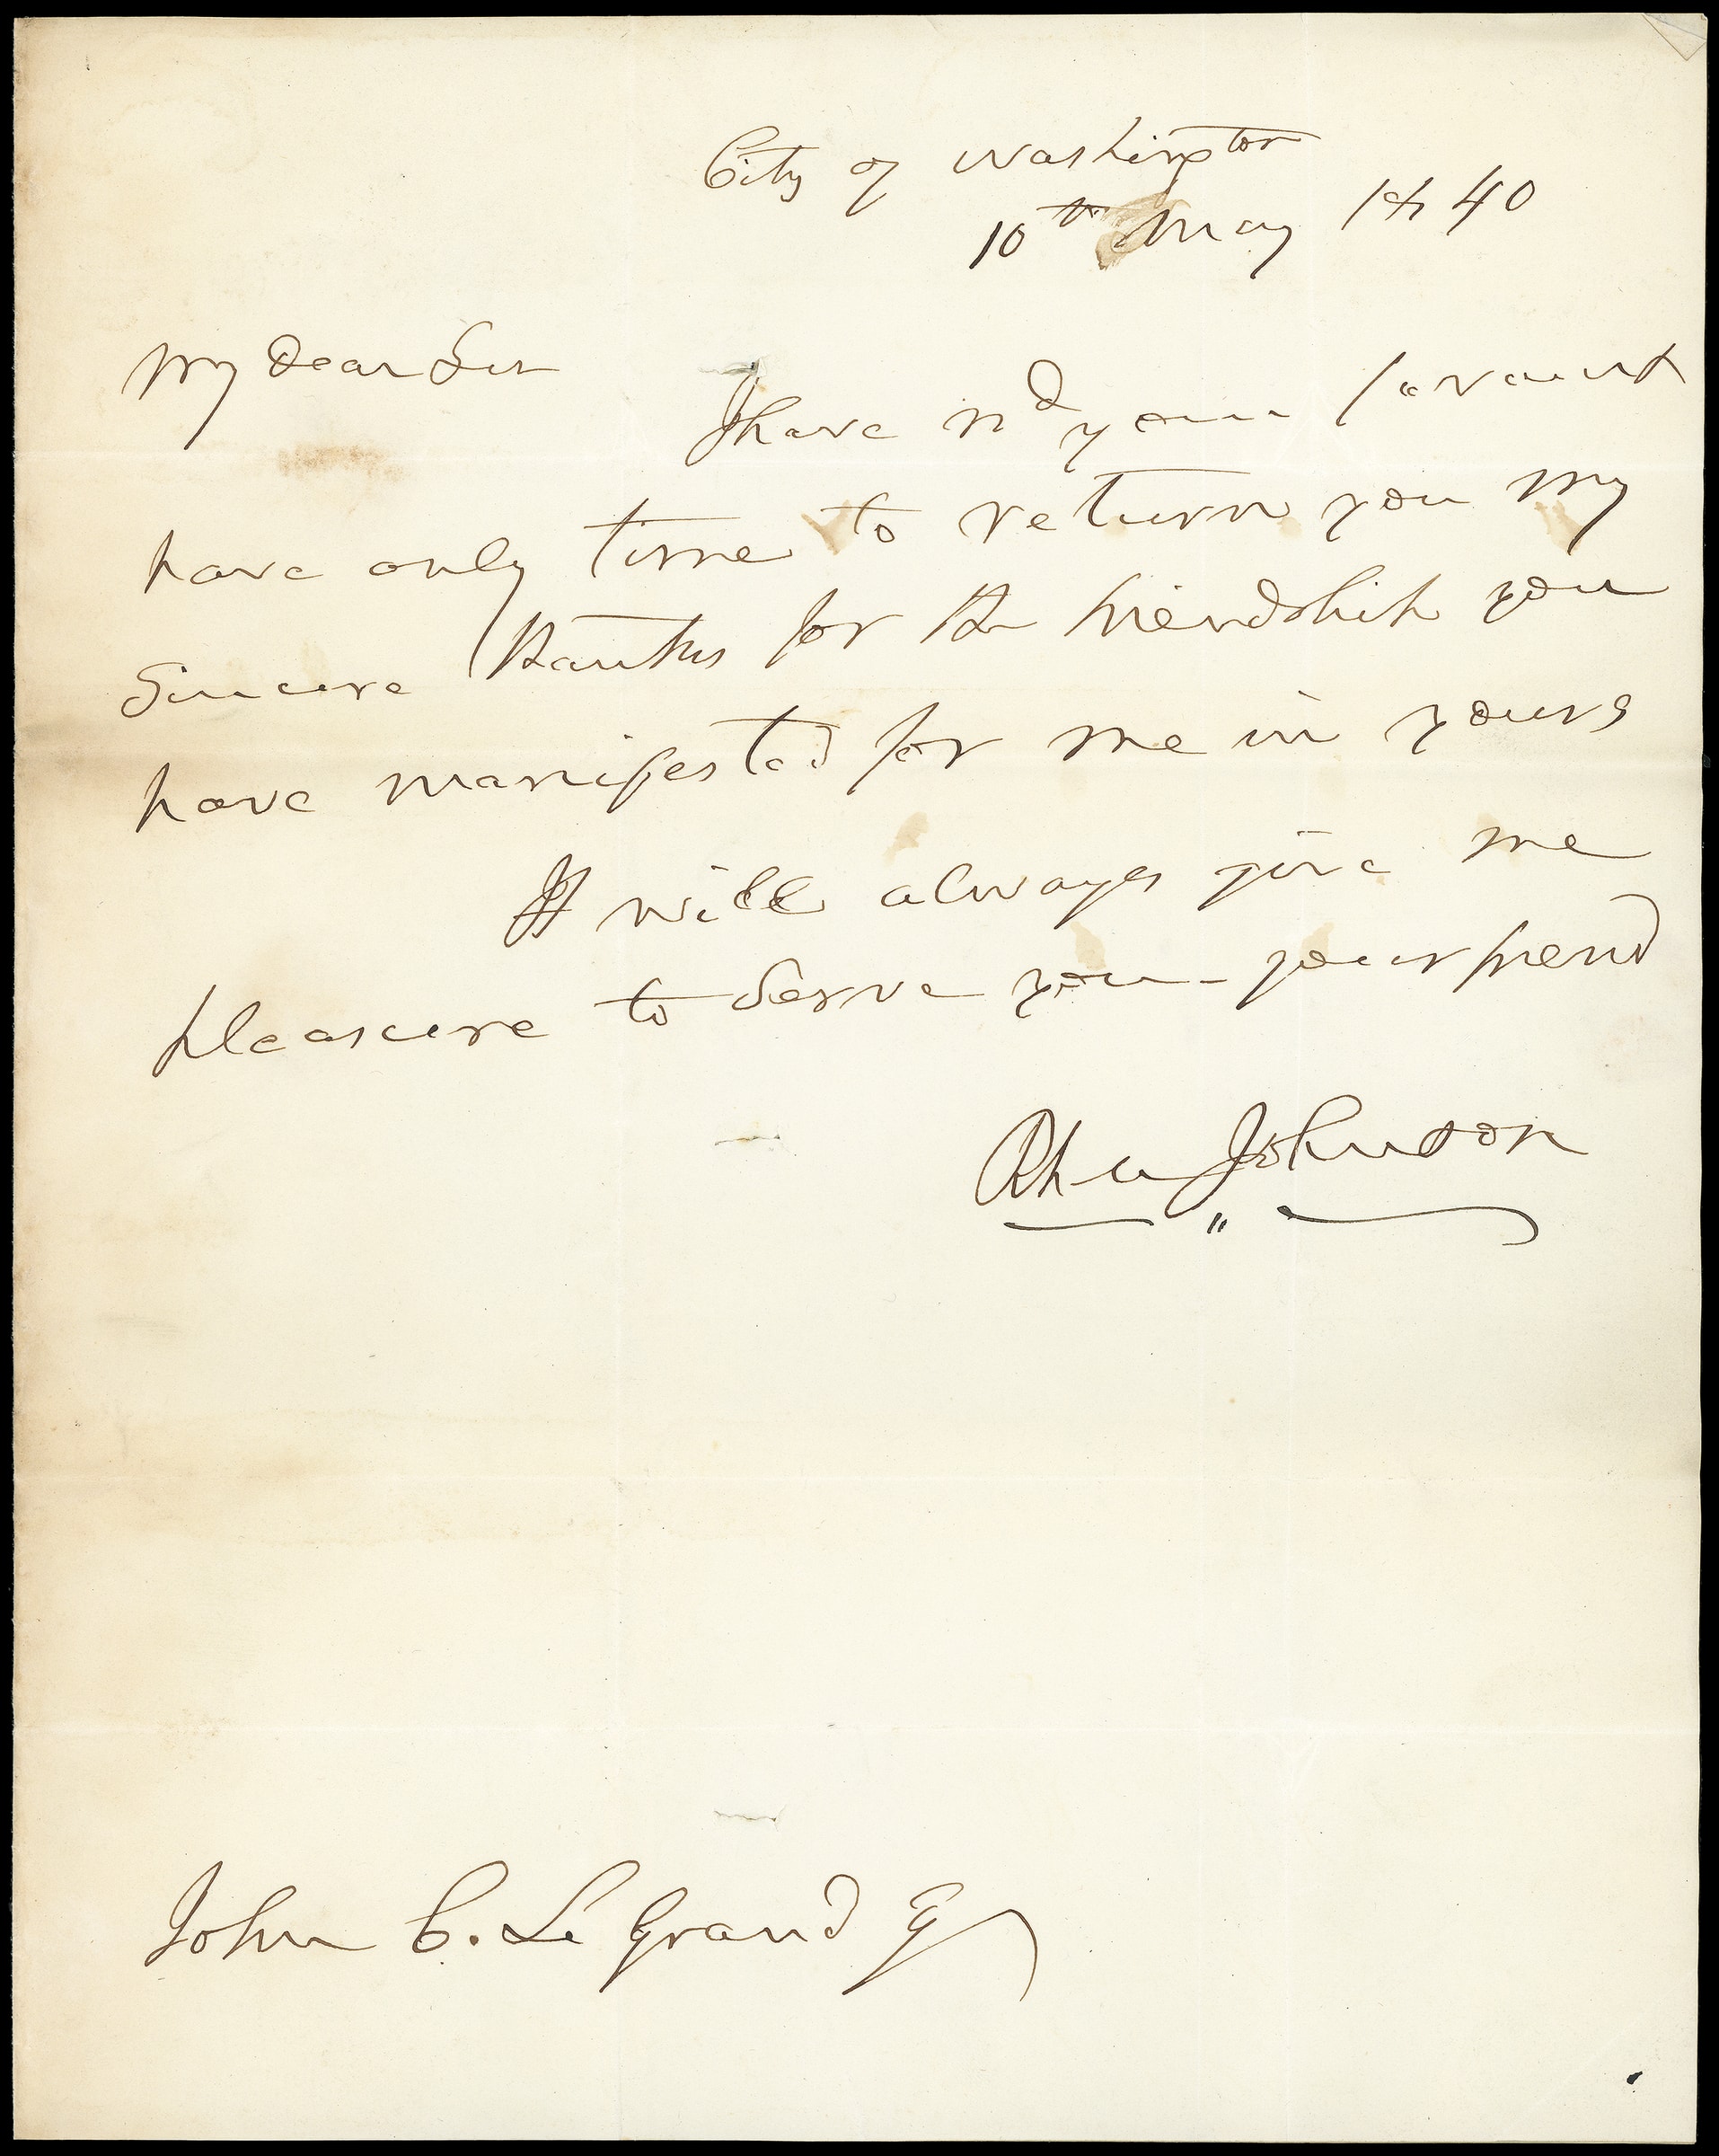 City of Washington
10th May 1840
My Dear Sir
I have rd your favour &
have only time to return you my
Sincere thanks for the friendship you
have manifested for me in yours
It will always give me
pleasure to Serve you - your friend
Rh M Johnson
John C. Le Grand Esq